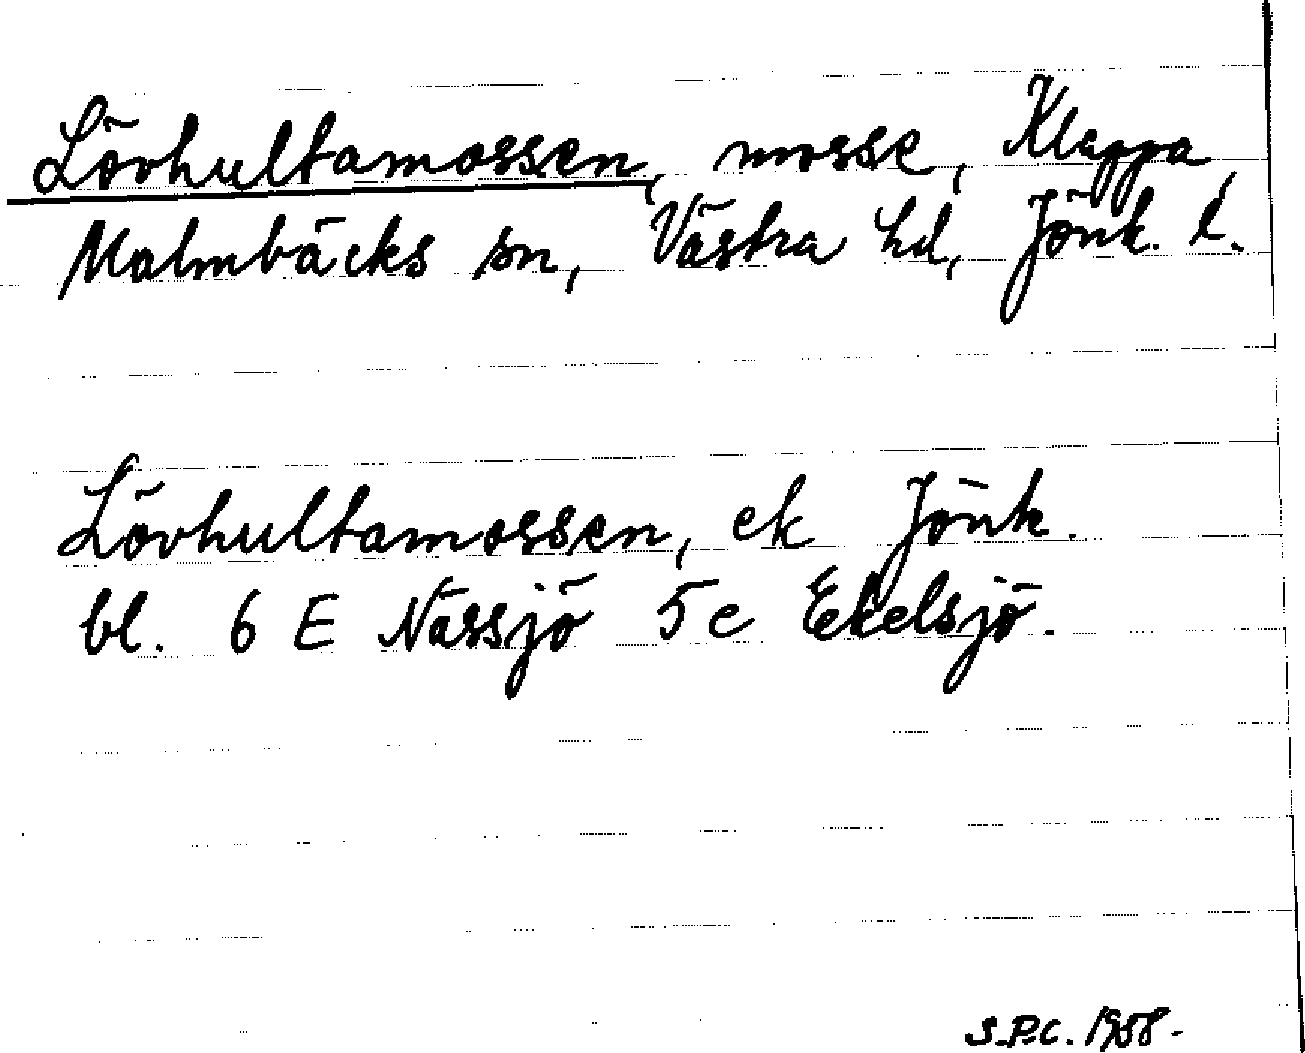 Lövhultamossen, mosse, Klappa,
Malmbäcks sn, Västra hd, Jönk. l.
Lövhultamossen, ek Jönk.
bl. 6 E Nässjö 5 c Ekelsjö.
S.P.C. 1958-